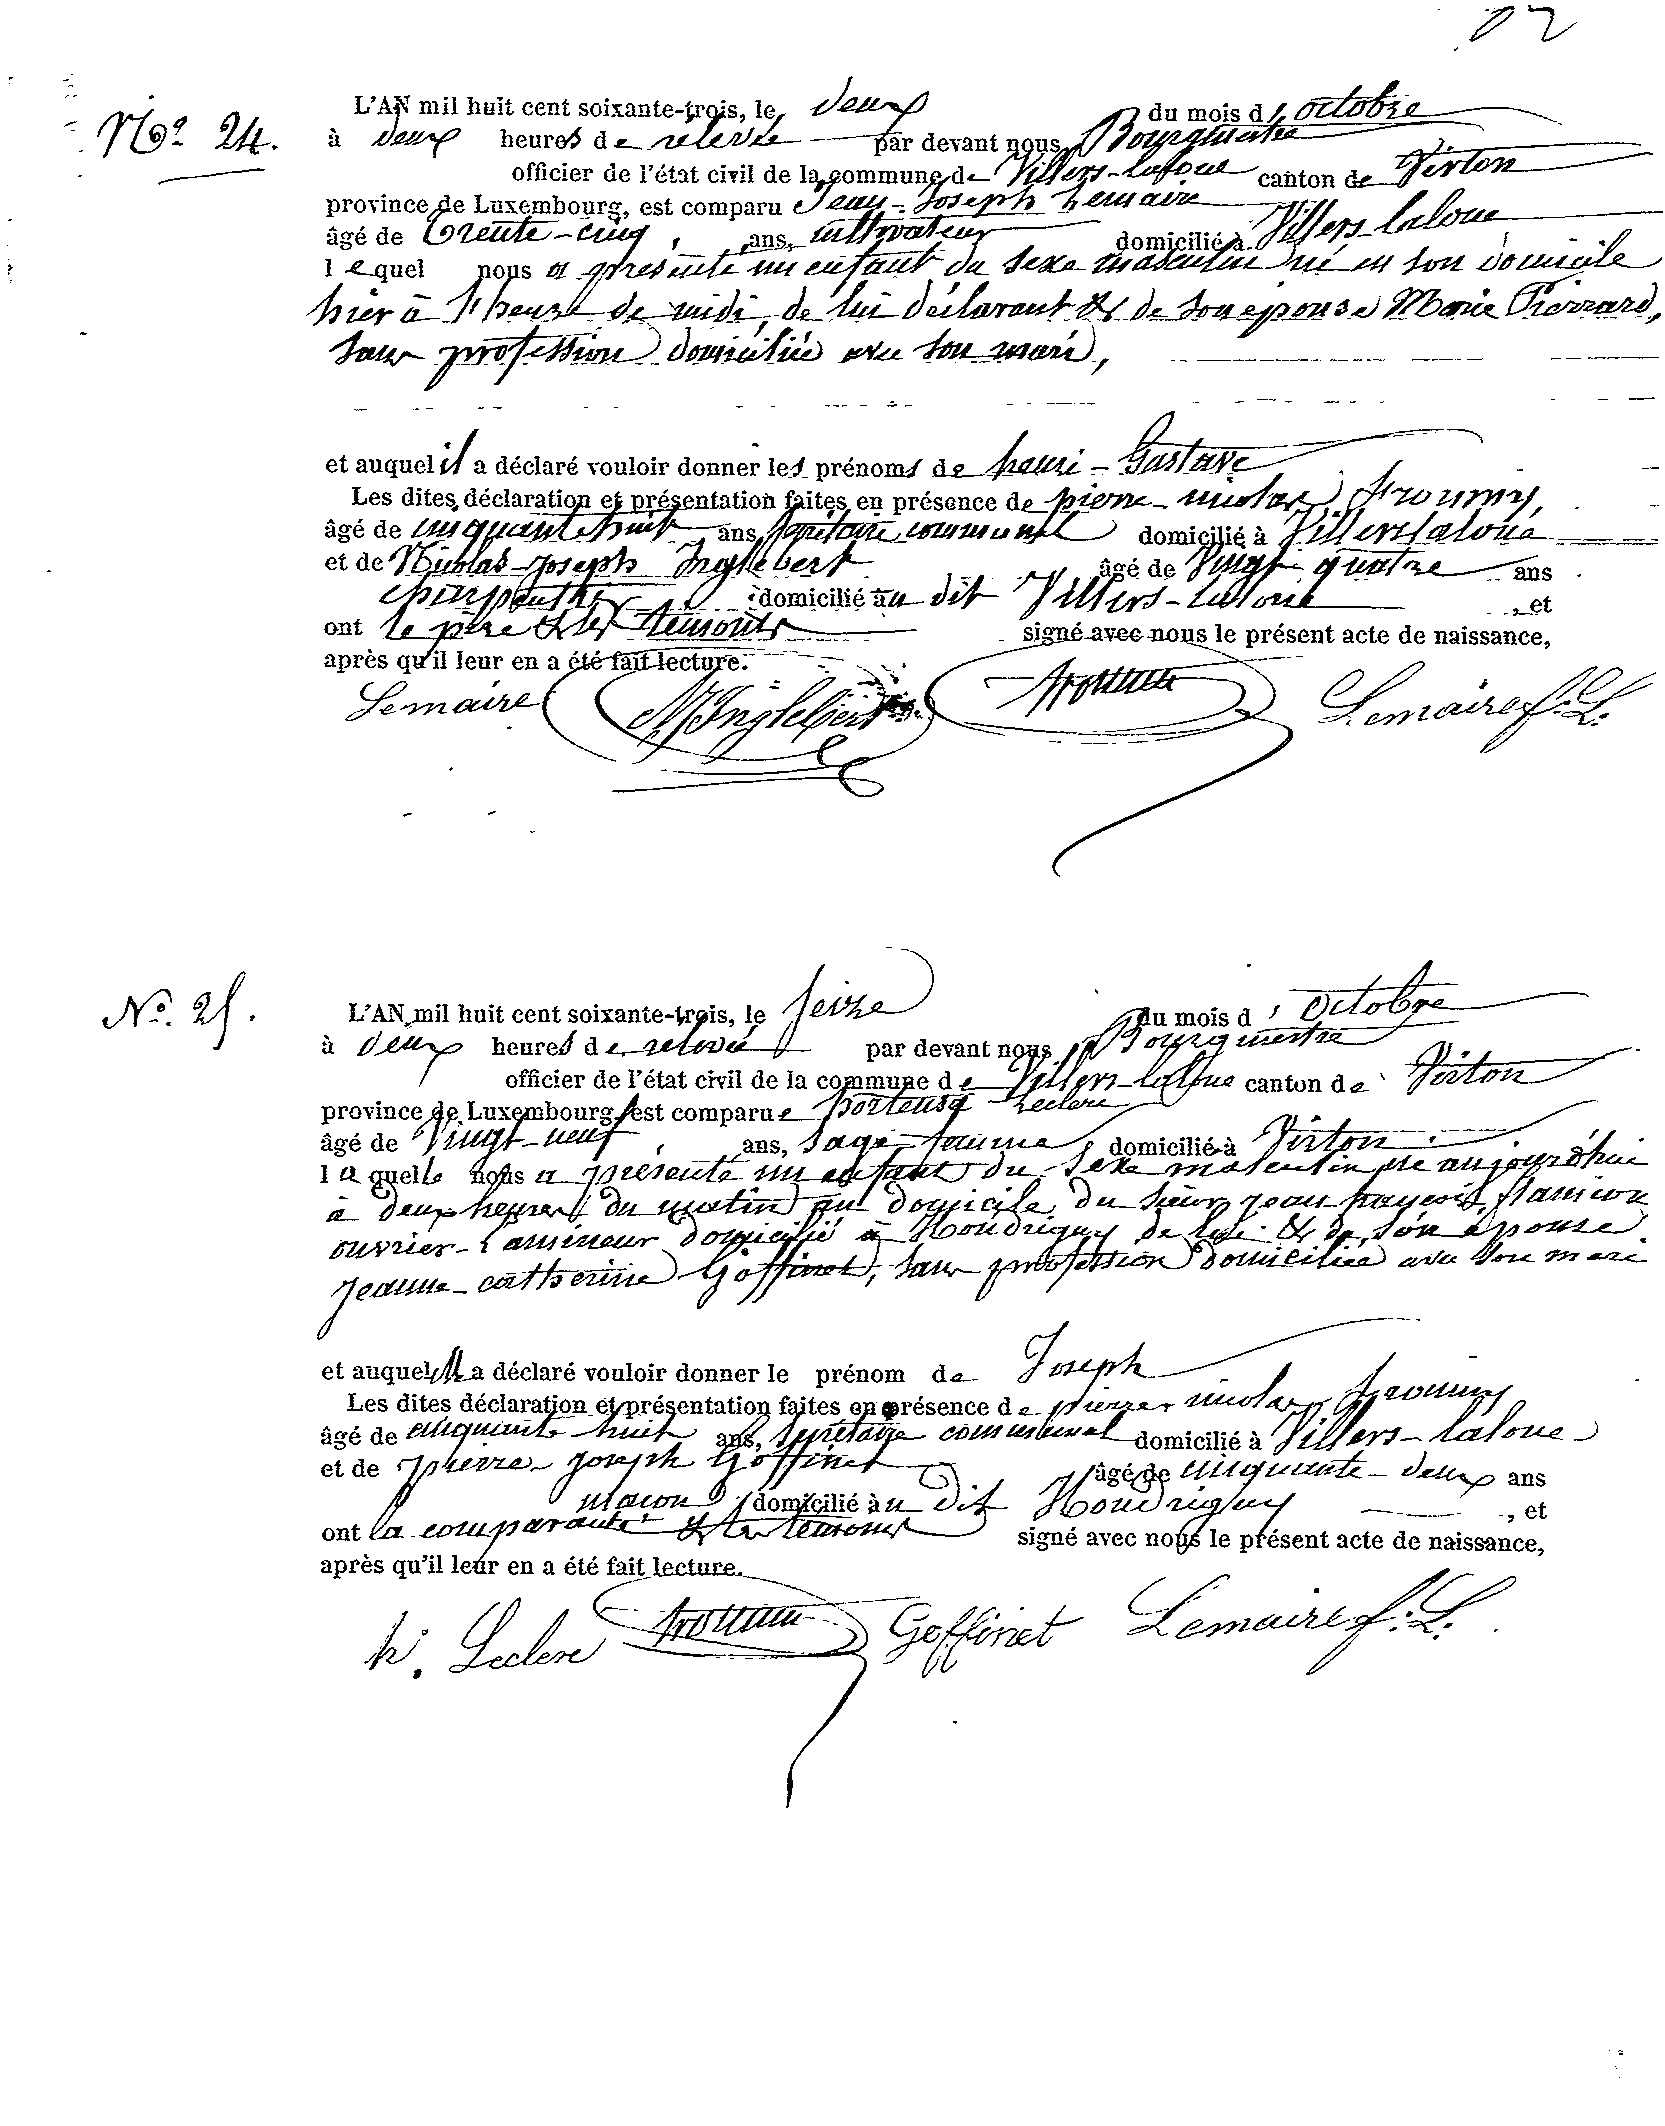 No. 24.
L'AN mil huit cent soixante-trois, le deux du mois d' octobre
à deux heures de relevée par devant nous Bourgmestre
officier de l'état civil de la commune de Villers-laloue canton de Virton
province de Luxembourg, est comparu Jean-Joseph Lemaire
âgé de trente-cinq ans, cultivateur domicilié à Villers-laloue
lequel nous a présenté un enfant du sexe masculin né en son domicile
hier à l'heure de midi, de lui déclarant & de son épouse Marie Pierrard,
sans profession domiciliée avec son mari,
et auquel il a déclaré vouloir donner les prénoms de henri-Gustave
Les dites déclaration et présentation faites en présence de pierre-nicolas
âgé de cinquante huit ans, secrétaire communal domicilié à Villers laloue
et de Nicolas-Joseph Inglebert âgé de Vingt-quatre ans
charpentier domicilié au dit Villers-laloue , et
ont le père & les témoins signé avec nous le présent acte de naissance,
après qu'il leur en a été fait lecture.
Lemaire NJInglebert Lemaire f.L.
No. 25.
L'AN mil huit cent soixante-trois, le seize du mois d' Octobre
à deux heures de relevée par devant nous Bourgmestre
officier de l'état civil de la commune de Villers-laloue canton de Virton
province de Luxembourg, est comparue hortense Leclere
âgé de Vingt-neuf ans, sage femme domicilié à Virton
laquelle nous a présenté un enfant du sexe masculin né aujourd'hui
à deux heures du matin au domicile du sieur jean françois flamion
ouvrier-lamineur domicilié à Houdrigny de lui & de son épouse
jeanne-catherine Goffinet, sans profession domiciliée avec son mari
et auquel elle a déclaré vouloir donner le prénom de Joseph
Les dites déclaration et présentation faites en présence de pierre nicolas
âgé de cinquante huit ans, secrétaire communal domicilié à Villers-laloue
et de pierre-joseph Goffinet âgé de cinquante-deux ans
macon domicilié au dit Houdrigny , et
ont la comparante & les témoins signé avec nous le présent acte de naissance,
après qu'il leur en a été fait lecture.
h. Leclere Goffinet Lemaire f.L.